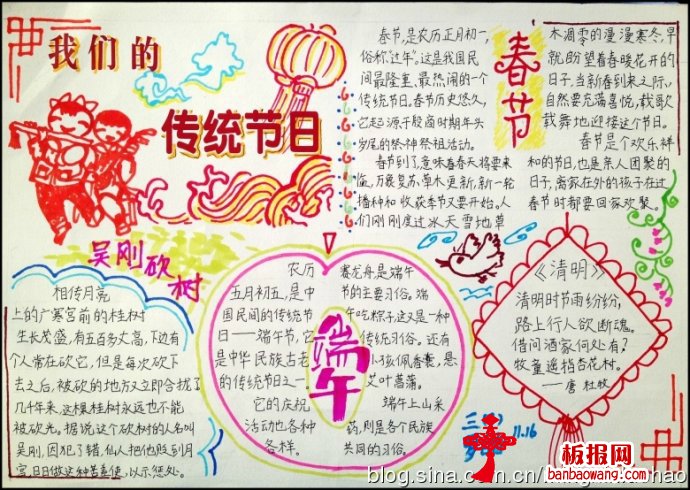 我们的
传统节日
春节,是农历正月初一,
俗称"过年"。这是我国民
间最隆重、最热闹的一个
传统节日。春节历史悠久,
它起源于殷商时期年头
岁尾的祭神祭祖活动。
春节到了,意味着春天将要来
临,万蔟复苏,草木更新,新一轮
播种和收获季节又要开始。人
们刚刚度过冰天雪地草
春节
木凋零的漫漫寒冬,早
就盼望着春暖花开的
日子,当新春到来之际,
自然要充满喜悦,载歌
载舞地迎接这个节日。
春节是个欢乐祥
和的节日,也是亲人团聚的
日子,离家在外的孩子在过
春节时都要回家欢聚。
吴刚砍树
相传月亮
上的广寒宫前的桂树
生长茂盛,有五百多丈高,下边有
个人常在砍它,但是每次砍下
去之后,被砍的地方又立即合拢了
几千年来,这棵桂树永远也不能
被砍光。据说这个砍树的人名叫
吴刚,因犯了错,仙人把他贬到月
宫,日日做这种苦差使,以示惩处。
农历
五月初五,是中
国民间的传统节
日——端午节,它
是中华民族古老
的传统节日之一。
它的庆祝
活动也各种
各样。
端午
赛龙舟,是端午
节的主要习俗。端
午吃粽子,这又是一种
传统习俗。还有
小孩佩香囊,悬
艾叶菖蒲。
端午上山采
药,则是各个民族
共同的习俗。
《清明》
清明时节雨纷纷,
路上行人欲断魂。
借问酒家何处有?
牧童遥指杏花村。
——唐 杜牧
11.16
板报网
banbaowang.com